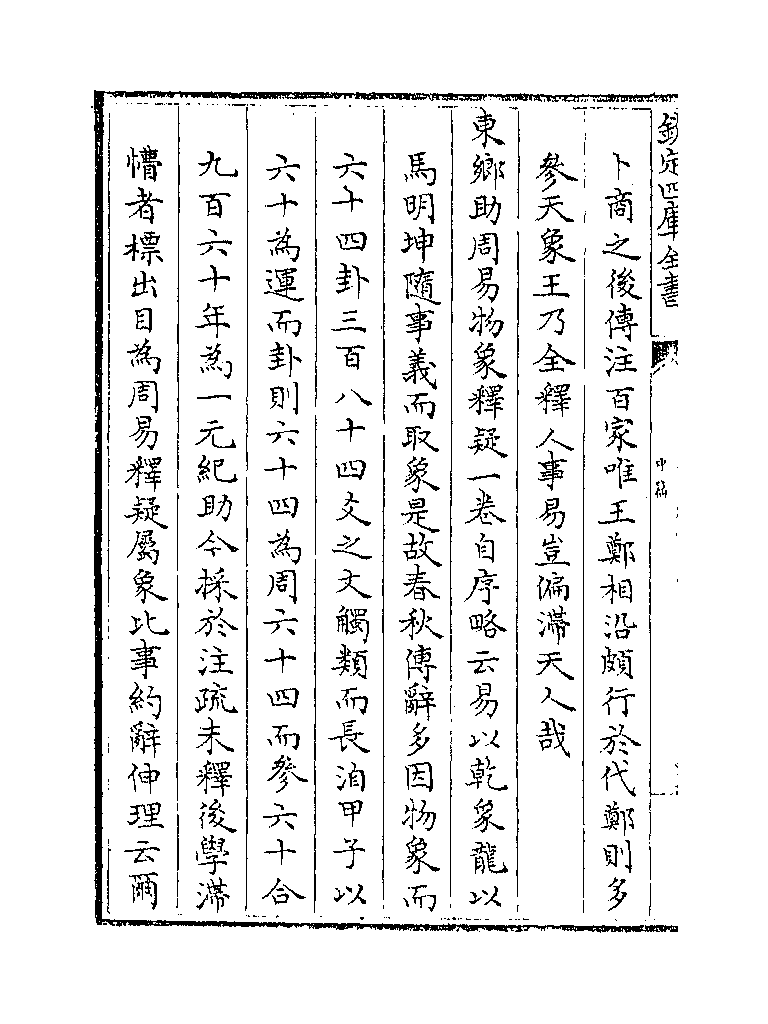 欽定四庫全書
卜商之後傳注百家唯王鄭相沿頗行於代鄭則多
參天象王乃全釋人事易豈偏滯天人哉
東鄉助周易物象釋疑一卷自序略云易以乾象龍以
馬明坤隨事義而取象是故春秋傳辭多因物象而
六十四卦三百八十四爻之文觸類而長洎甲子以
六十為運而卦則六十四為周六十四而參六十合
九百六十年為一元紀助今採於注疏未釋後學滯
懵者標出目為周易釋疑屬象比事約辭伸理云爾